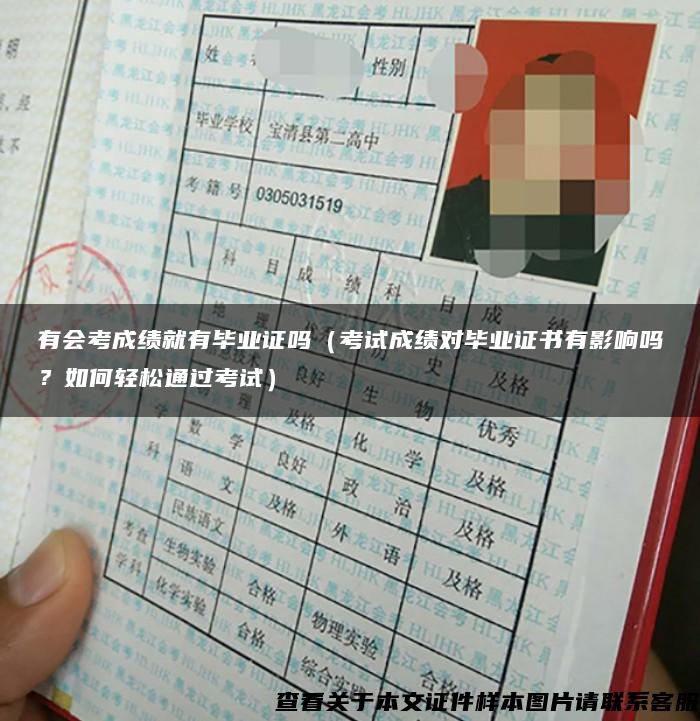 明
经
不
姓
性别
毕业学校 宝清县第二高中
考籍号 0305031519
科目 成绩 科目 成绩
有会考成绩就有毕业证吗（考试成绩对毕业证书有影响吗
？如何轻松通过考试）
地理 历史 及格
信息技术 良好 生物 优秀
物理 及格 化学 及格
数学 良好 政治 及格
语文 及格 外语 及格
民族语文
考查学科
生物实验 合格 物理实验 合格
化学实验 合格 综合实
查看关于本文证件样本图片请联系客服